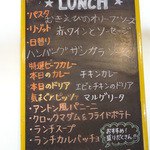 LUNCH
・パスタ
むきえびのオリーブソース
・リゾット
赤ワインとソーセージ
・日替り
ハンバーグ サンガラ
・特選ビーフカレー
・本日のカレー チキンカレー
・本日のドリア エビとチキンのドリア
・気まぐれピッツァ マルゲリータ
・アントン風パニーニ
・クロックマダム&フライドポテト
・ランチスープ
・ランチカルパッチョ
おすすめ!